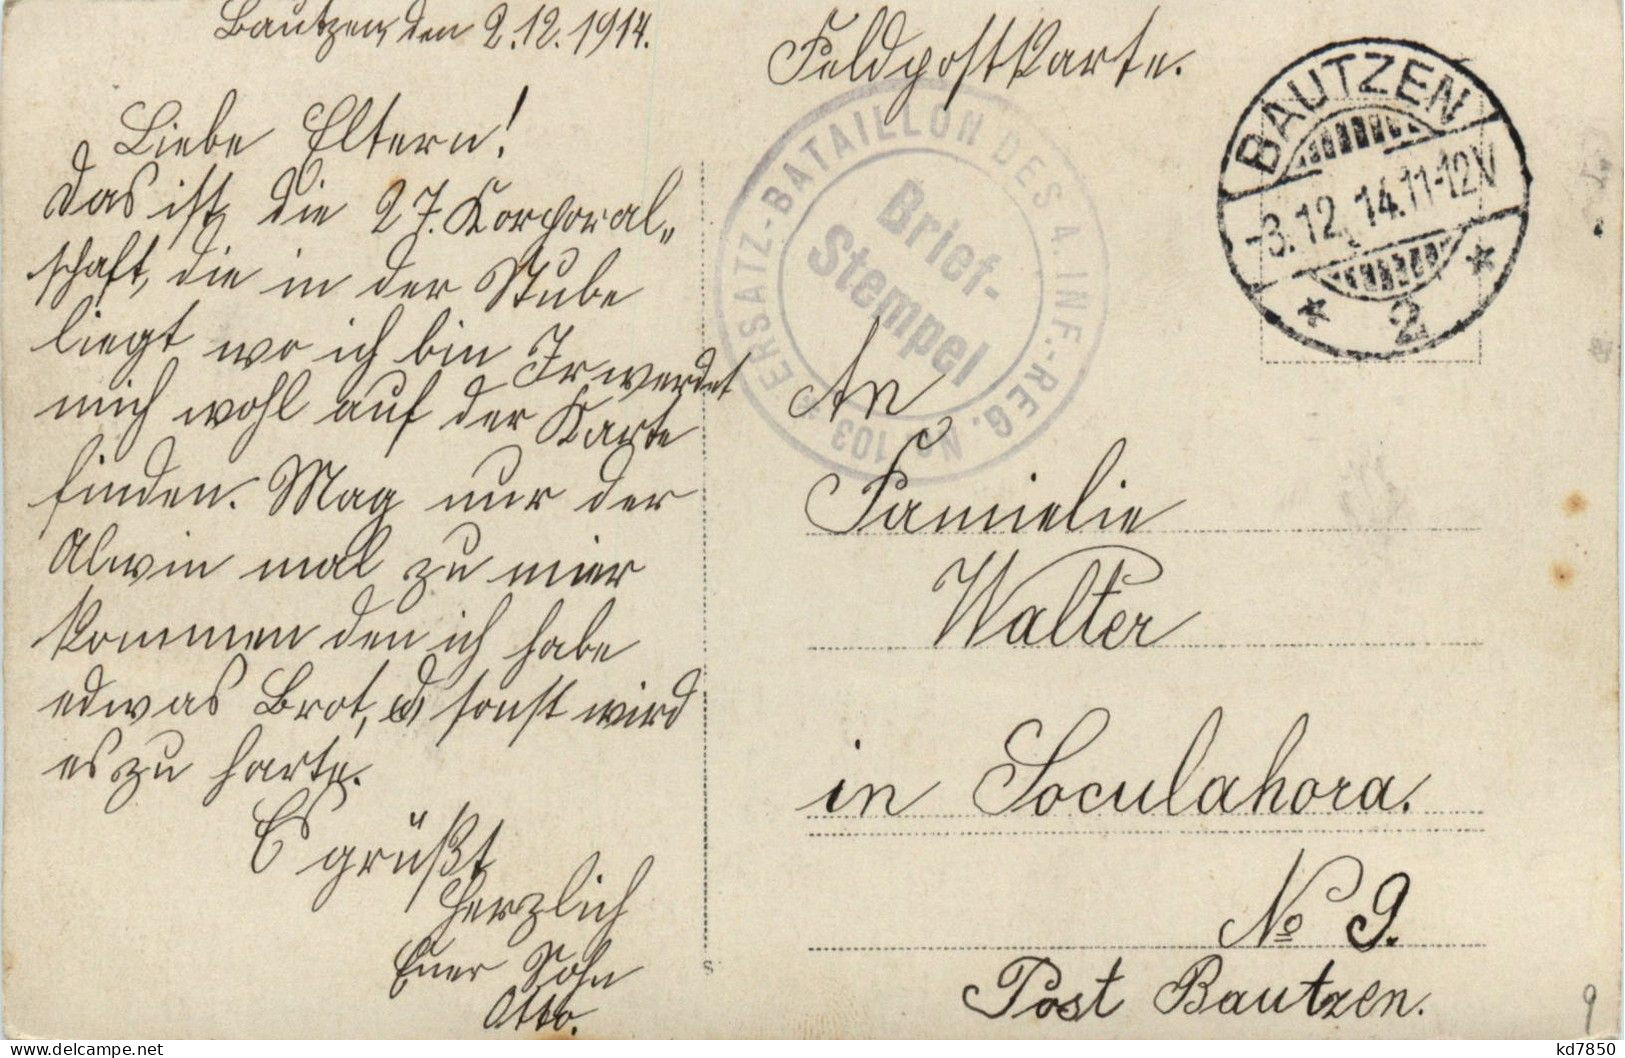 Bautzen, den 2.12.1914.
Liebe Eltern!
Das ist die 27. Korporal-
schaft, die in der Stube
liegt wo ich bin Ir werdet
mich wohl auf der Karte
finden. Mag nur der
Alwin mal zu mier
kommen den ich habe
edwas Brot, sonst wird
es zu harte.
Es grüßt
herzlich
Euer Sohn
Otto.
Feldpostkarte.
ERSATZ-BATAILLON DES 4. INF.-REG. No. 103
Brief-
Stempel
BAUTZEN
3.12.14.11-12V
* 2 *
An
Famielie
Walter
in Soculahora.
No 9.
Post Bautzen.
9
kd7850